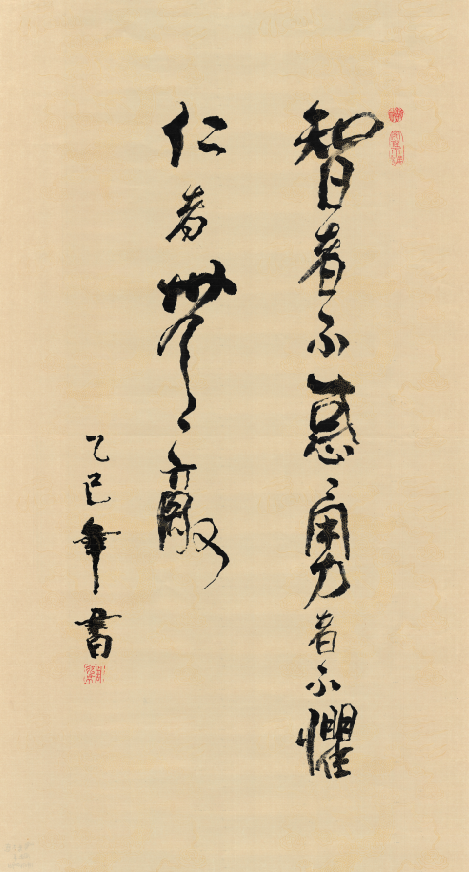 智者不惑勇者不懼
仁者無敵
乙巳年書